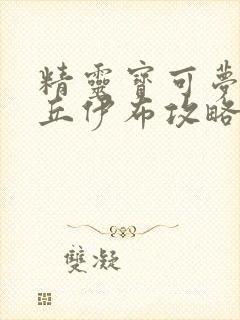 精靈寶可夢
丘伊布攻略
雙凝